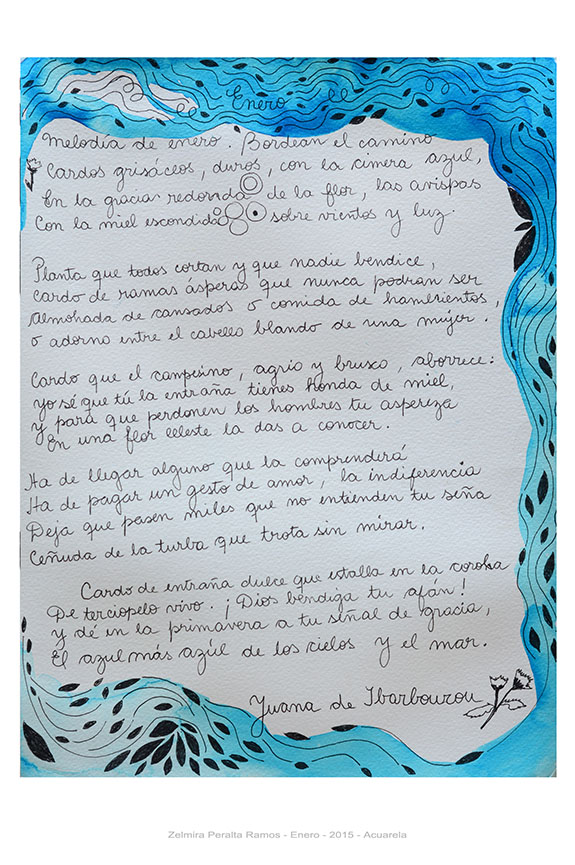 Enero
Melodía de enero. Bordean el camino
Cardos grisáceos, duros, con la cimera azul,
En la gracia redonda de la flor, las avispas
Con la miel escondida sobre vientos y luz.
Planta que todos cortan y que nadie bendice,
Cardo de ramas ásperas que nunca podrán ser
Almohada de cansados o comida de hambrientos,
o adorno entre el cabello blando de una mujer.
Cardo que el campesino, agrio y brusco, aborrece:
yo sé que tú la entraña tienes honda de miel,
y para que perdonen los hombres tu aspereza
En una flor celeste la das a conocer.
Ha de llegar alguno que la comprenderá
Ha de pagar un gesto de amor, la indiferencia
Deja que pasen miles que no entienden tu seña
Ceñuda de la turba que trota sin mirar.
Cardo de entraña dulce que estalla en la corola
De terciopelo vivo. ¡Dios bendiga tu afán!
y dé en la primavera a tu señal de gracia,
El azul más azúl de los cielos y el mar.
Juana de Ibarbourou
Zelmira Peralta Ramos - Enero - 2015 - Acuarela